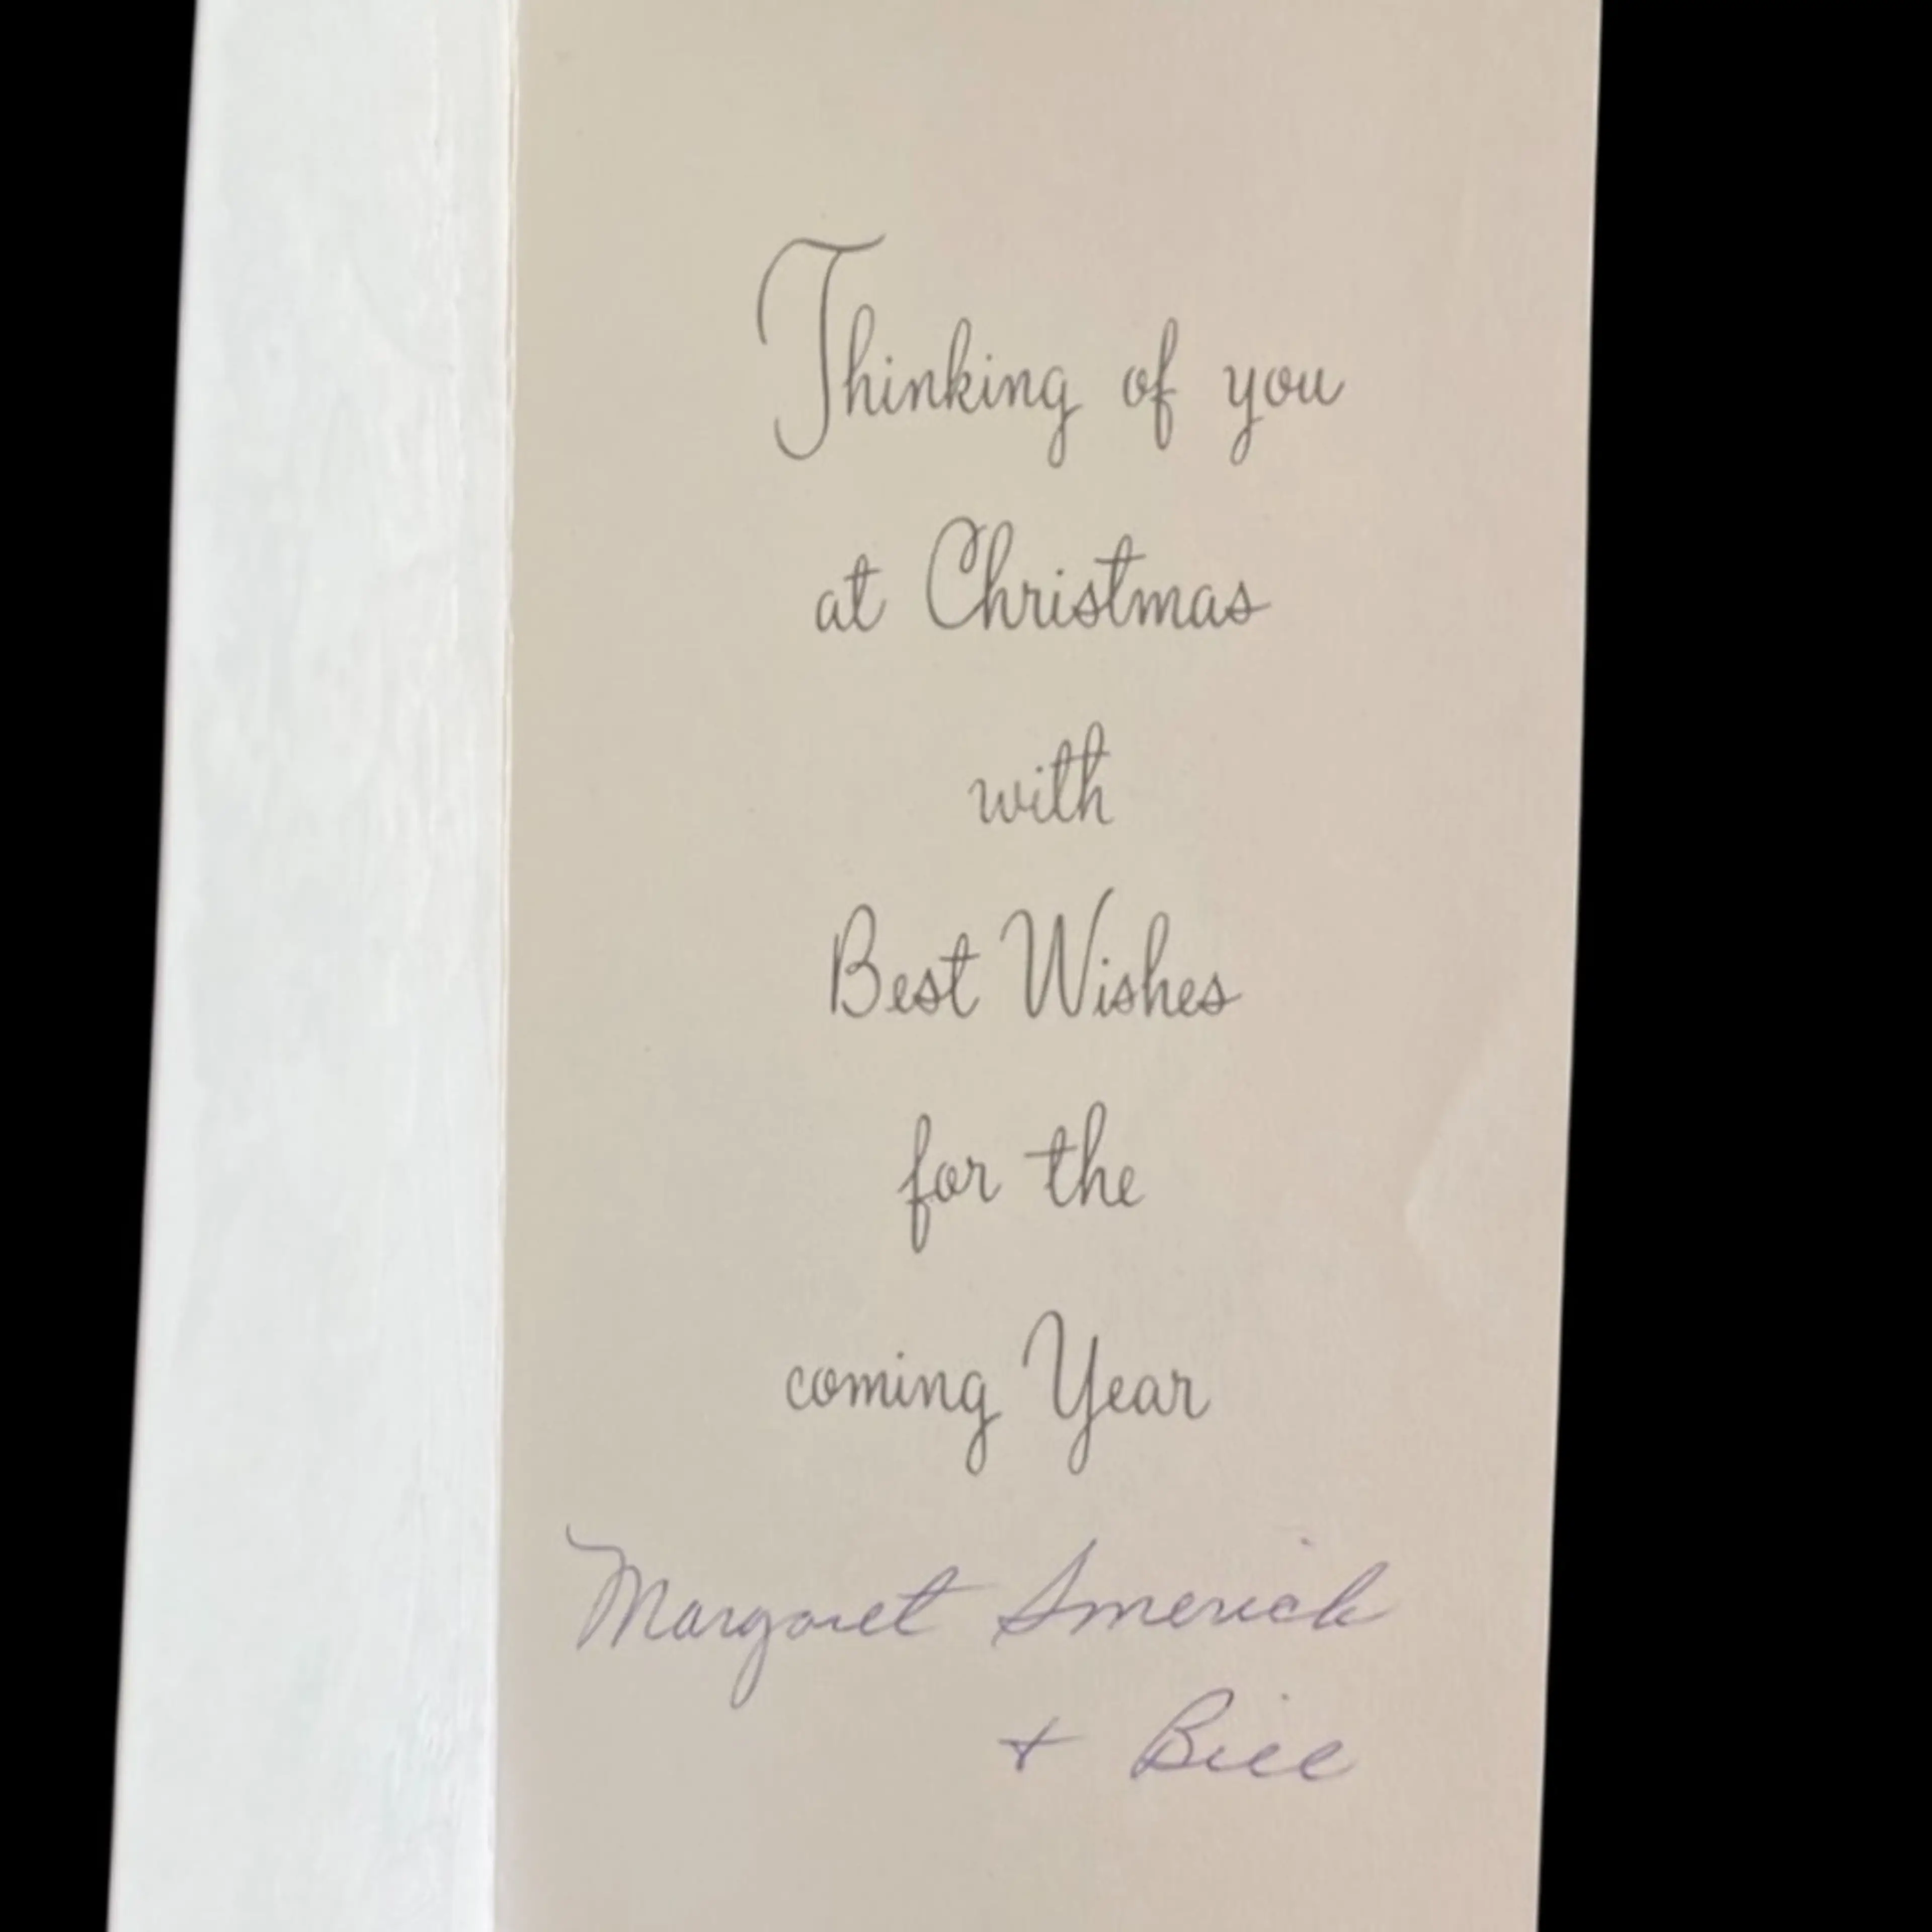 Thinking of you
at Christmas
with
Best Wishes
for the
coming Year
Margaret Smerick
+ Bill